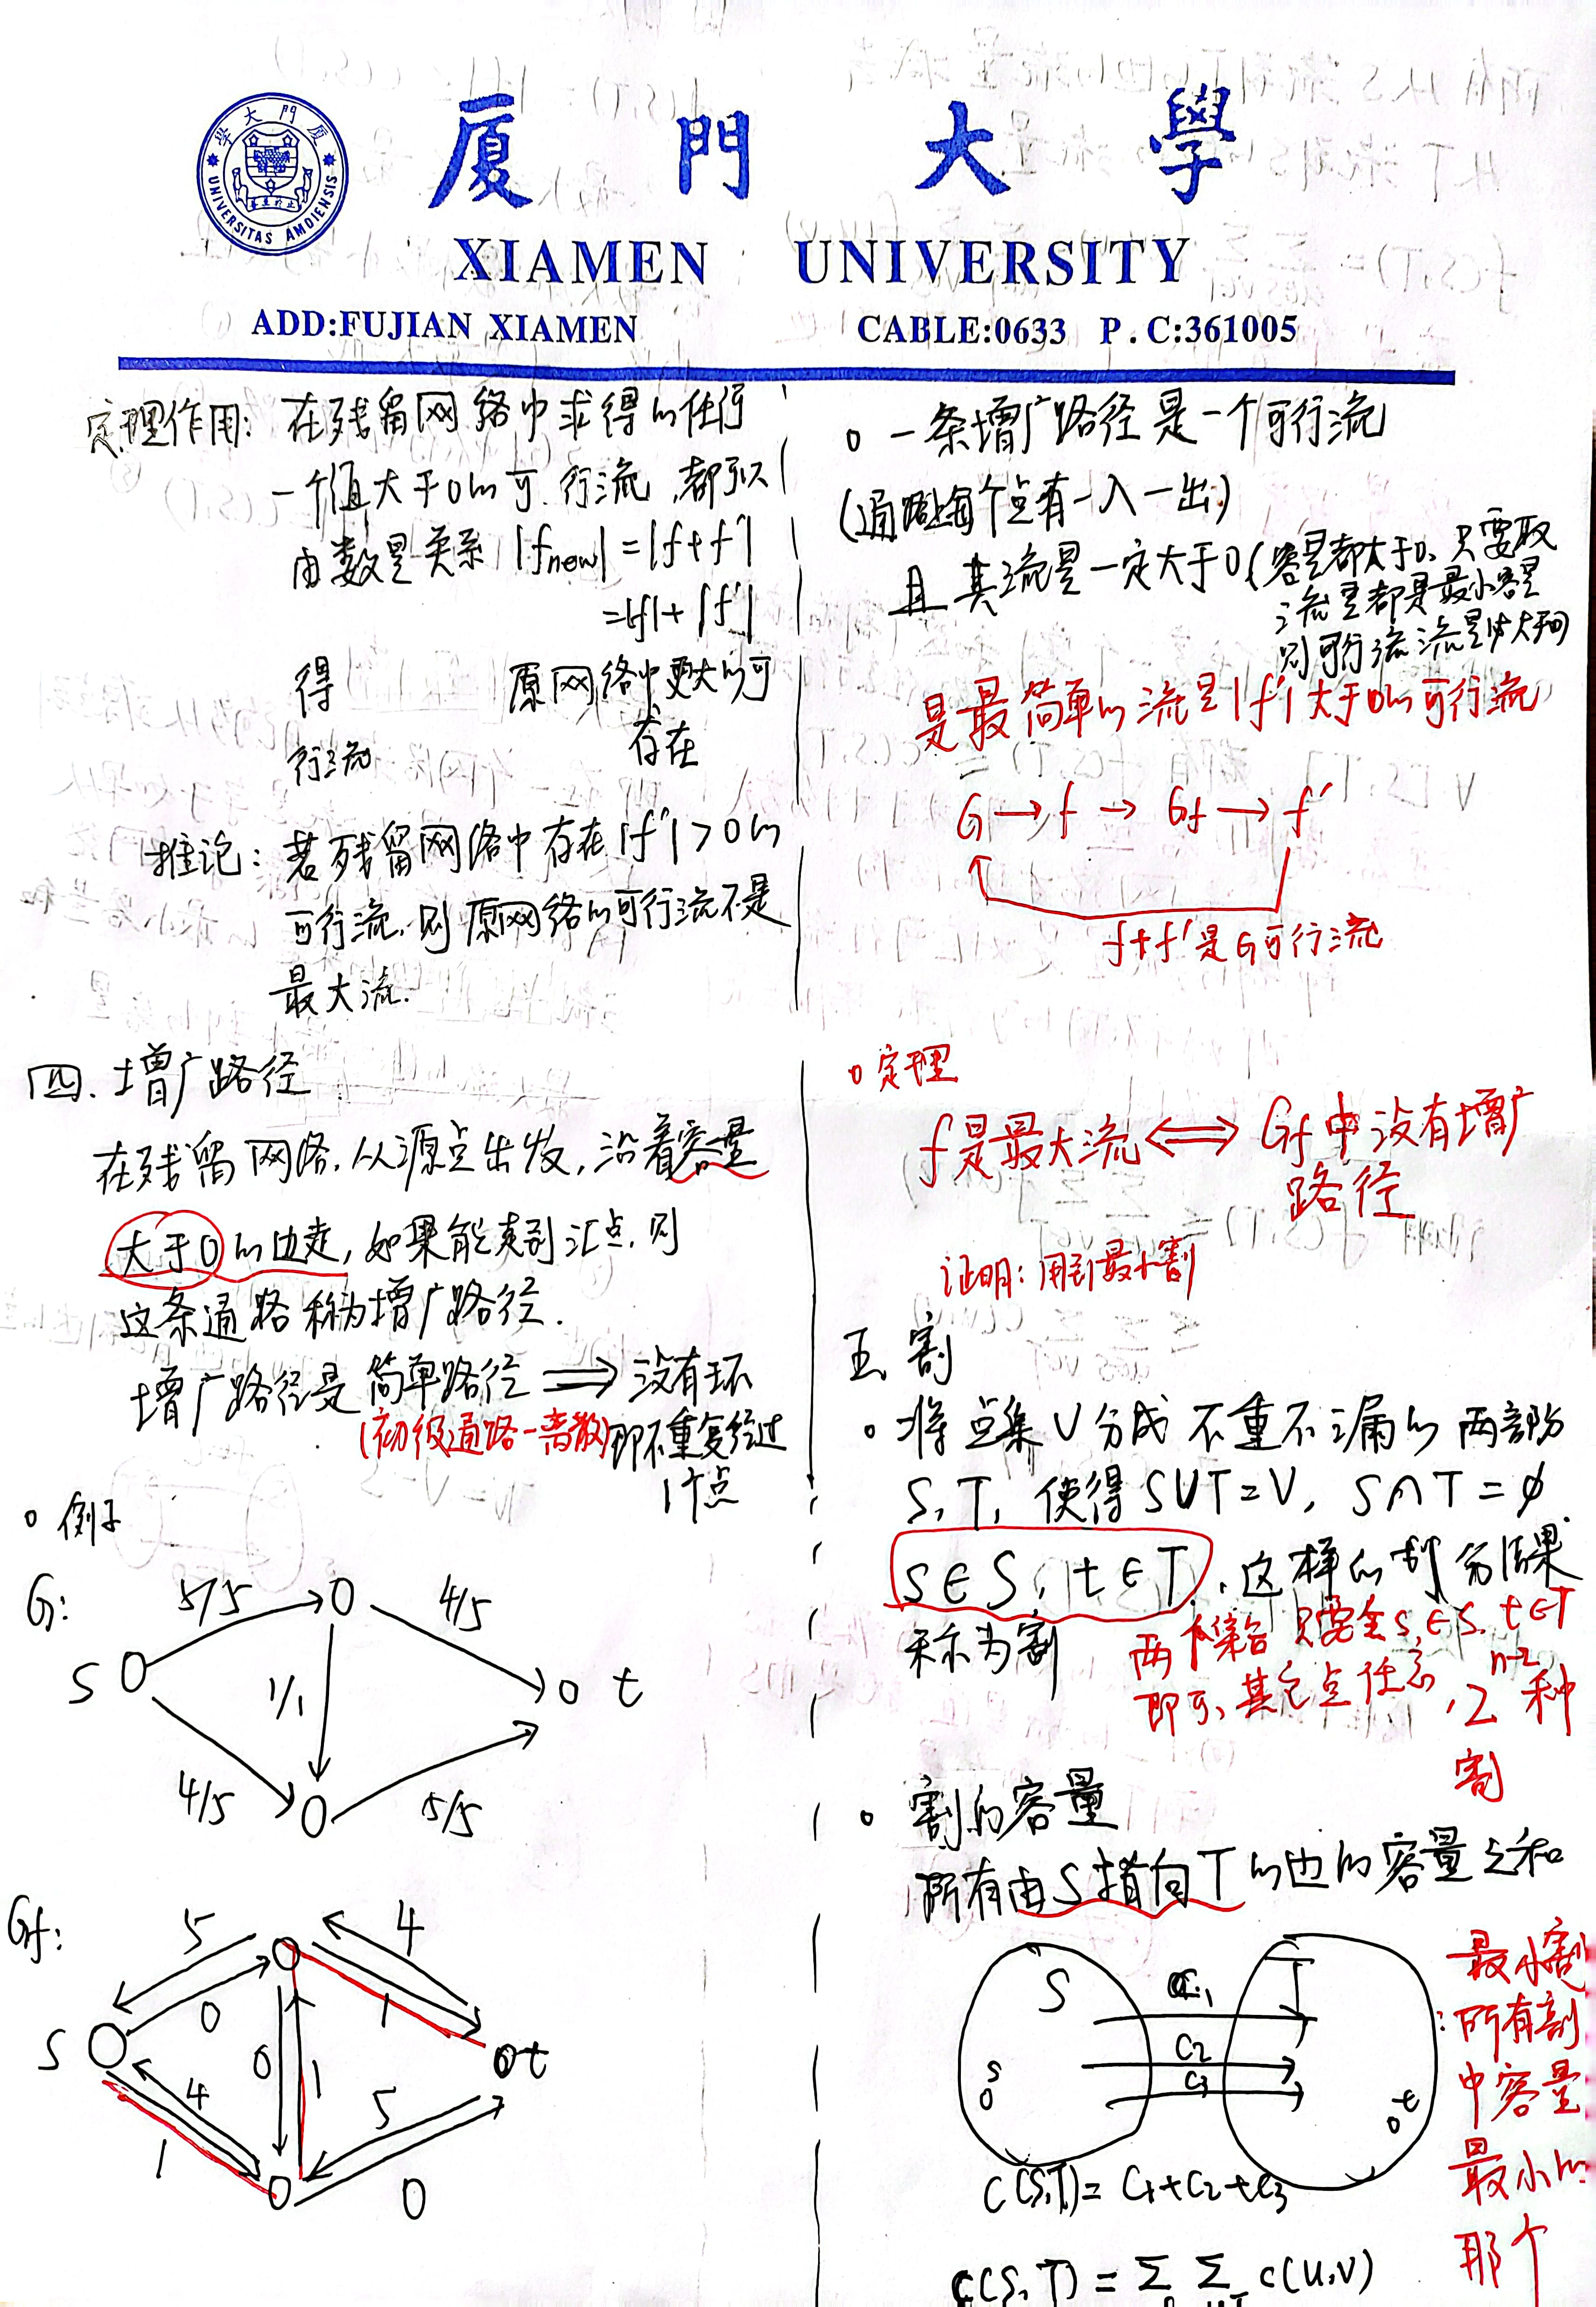 廈門大學
UNIVERSITAS AMOIENSIS
廈 門 大 學
XIAMEN UNIVERSITY
ADD:FUJIAN XIAMEN CABLE:0633 P.C:361005
定理作用: 在残留网络中求得的任何
一个值大于0的可行流,都可以
由数量关系 |fnew| = |f+f'|
=|f|+|f'|
得 原网络中更大的可
存在
行流
推论: 若残留网络中存在|f'|>0的
可行流,则原网络的可行流不是
最大流.
四. 增广路径
在残留网络,从源点出发,沿着容量
大于0的边走,如果能走到汇点,则
这条通路称为增广路径.
增广路径是简单路径 ⟹ 没有环
(初级通路-离散) 即不重复经过
1个点
o 例子
G:
5/5 4/5
S 1/1 t
4/5 5/5
Gf:
5 4
0 1
S 0 1 t
4 5
1 0
o 一条增广路径是一个可行流
(通路上每个点有一入一出)
且其流量一定大于0(容量都大于0,只要取
流量都是最小容量
则可行流流量大于0)
是最简单的流量|f'|大于0的可行流
G → f → Gf → f'
f+f'是G可行流
o 定理
f是最大流 ⟺ Gf中没有增广
路径
证明: 用到最小割
五. 割
o 将点集V分成不重不漏的两部分
S,T, 使得S∪T=V, S∩T=∅
s∈S, t∈T, 这样的划分结果
称为割
两个集合只要令s∈S, t∈T
即可,其它点任意, 2^{n-2}种
割
o 割的容量
所有由S指向T的边的容量之和
S T
C1
C2
C3
s t
C(S,T)=C1+C2+C3
C(S,T)=Σ Σ c(u,v)
最小割
:所有割
中容量
最小的
那个